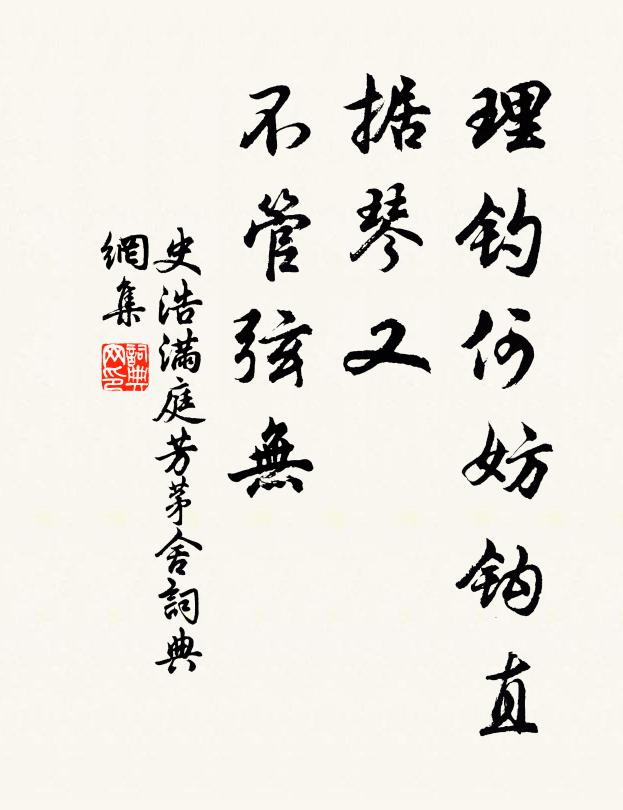 理钓何妨钩直
据琴又
不管弦無
史浩满庭芳茅舍詞典
網集
詞典
网印